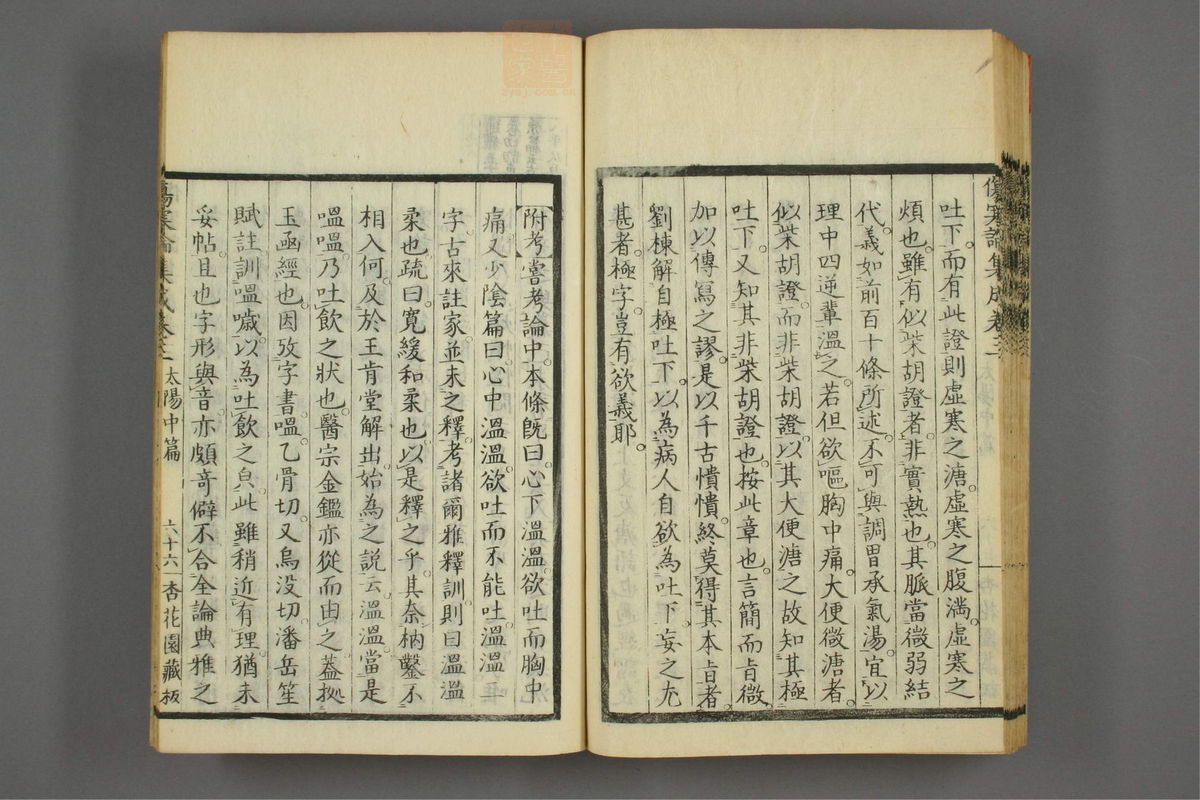 傷寒論集成卷三
吐下。而有此證則虛寒之溏。虛寒之腹滿。虛寒之
煩也。雖有似柴胡證者。非實熱也。其脈當微弱結
代。義如前百十條所述。不可與調胃承氣湯。宜以
理中四逆輩溫之。若但欲嘔胸中痛。大便微溏者。
似柴胡證。而非柴胡證。以其大便溏之故知其極
吐下。又知其非柴胡證也。按此章也。言簡而旨微。
加以傳寫之謬。是以千古憒憒。終莫得其本旨者。
劉棟解自極吐下。以為病人自欲為吐下。妄之尤
甚者。極字豈有欲義耶。
附考嘗考論中。本條既曰。心下溫溫。欲吐而胸中
痛又少陰篇曰。心中溫溫。欲吐而不能吐。溫溫二
字。古來註家。並未之釋。考諸爾雅釋訓。則曰溫溫
柔也。疏曰。寬緩和柔也。以是釋之乎。其奈枘鑿不
相入何。及於王肯堂解出。始為之說云。溫溫。當是
嗢嗢。乃吐飲之狀也。醫宗金鑑亦從而由之。蓋拠
玉函經也。因攷字書。嗢。乙骨切。又烏没切。潘岳笙
賦註。訓嗢噦。以為吐飲之皃。此雖稍近有理。猶未
妥帖。且也字形與音。亦頗奇僻。不合全論典雅之
傷寒論集成卷三 太陽中篇 六十六 杏花園藏板